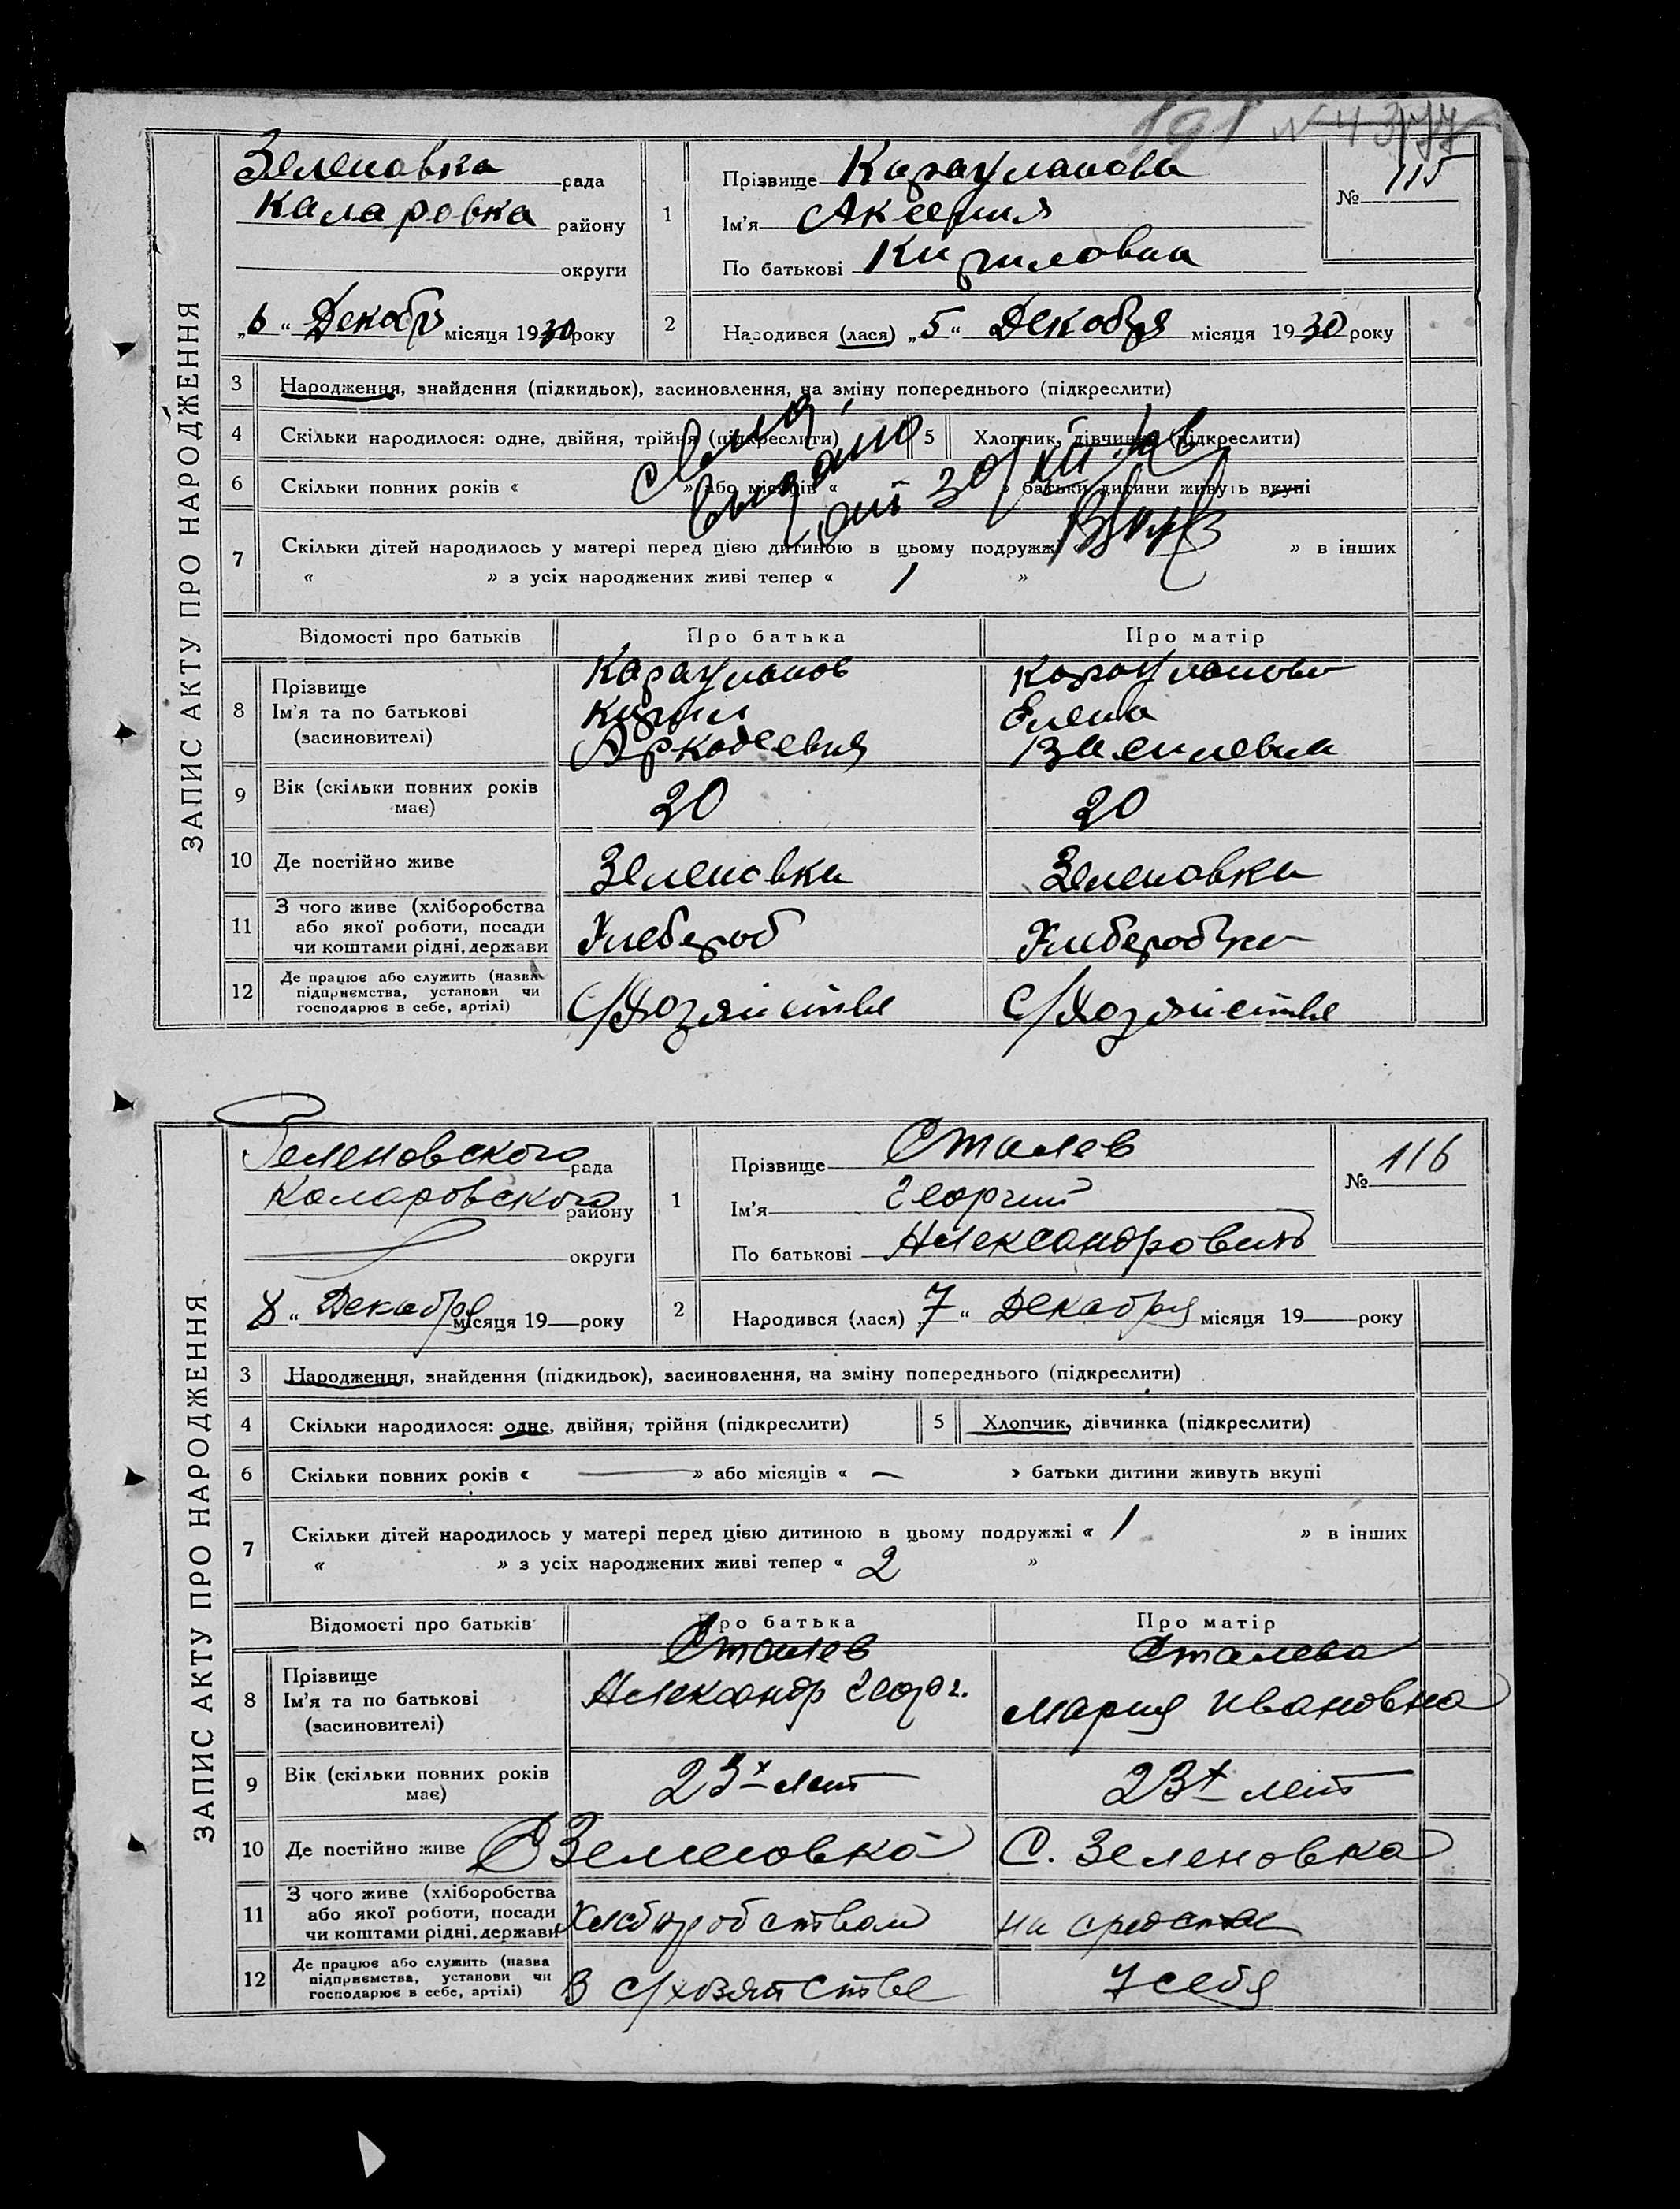 191 №43
115
Зеленовка рада
Каларовка району
округи
„6“ Декабр місяця 1930 року
1
Прізвище Карауланова
Ім'я Аксения
По батькові Кириловна
№ 115
2
Народився (лася) „5“ Декабря місяця 1930 року
ЗАПИС АКТУ ПРО НАРОДЖЕННЯ
3 Народження, знайдення (підкидьок), засиновлення, на зміну попереднього (підкреслити)
4 Скільки народилося: одне, двійня, трійня (підкреслити) 5 Хлопчик, дівчинка (підкреслити)
6 Скільки повних років « » або місяців « » батьки дитини живуть вкупі
7 Скільки дітей народилось у матері перед цією дитиною в цьому подружжі « » в інших
« » з усіх народжених живі тепер « 1 »
Відомості про батьків Про батька Про матір
8 Прізвище Ім'я та по батькові (засиновителі)
Карауланов
Кирил
Аркадеевич
Карауланова
Елена
Василевна
9 Вік (скільки повних років має) 20 20
10 Де постійно живе Зеленовка Зеленовка
11 З чого живе (хліборобства або якої роботи, посади чи коштами рідні, держави Хлебороб
12 Де працює або служить (назва підприємства, установи чи господарює в себе, артілі) С/Хозяйстве С/Хозяйстве
Зеленовского рада
Коларовского району
округи
8 “ Декабря місяця 19 року
1
Прізвище Сталев
Ім'я Георгий
По батькові Александрович
№ 116
2
Народився (лася) „7“ Декабря місяця 19 року
ЗАПИС АКТУ ПРО НАРОДЖЕННЯ
3 Народження, знайдення (підкидьок), засиновлення, на зміну попереднього (підкреслити)
4 Скільки народилося: одне, двійня, трійня (підкреслити) 5 Хлопчик, дівчинка (підкреслити)
6 Скільки повних років « — » або місяців « — » батьки дитини живуть вкупі
7 Скільки дітей народилось у матері перед цією дитиною в цьому подружжі « 1 » в інших
« » з усіх народжених живі тепер « 2 »
Відомості про батьків Про батька Про матір
8 Прізвище Ім'я та по батькові (засиновителі)
Сталев
Александр Георг.
Сталева
Мария Ивановна
9 Вік (скільки повних років має) 23х лет 23х лет
10 Де постійно живе С Зеленовка С. Зеленовка
11 З чого живе (хліборобства або якої роботи, посади чи коштами рідні, держави Хлеборобством на средства
12 Де працює або служить (назва підприємства, установи чи господарює в себе, артілі) В с/хозяйстве у себя